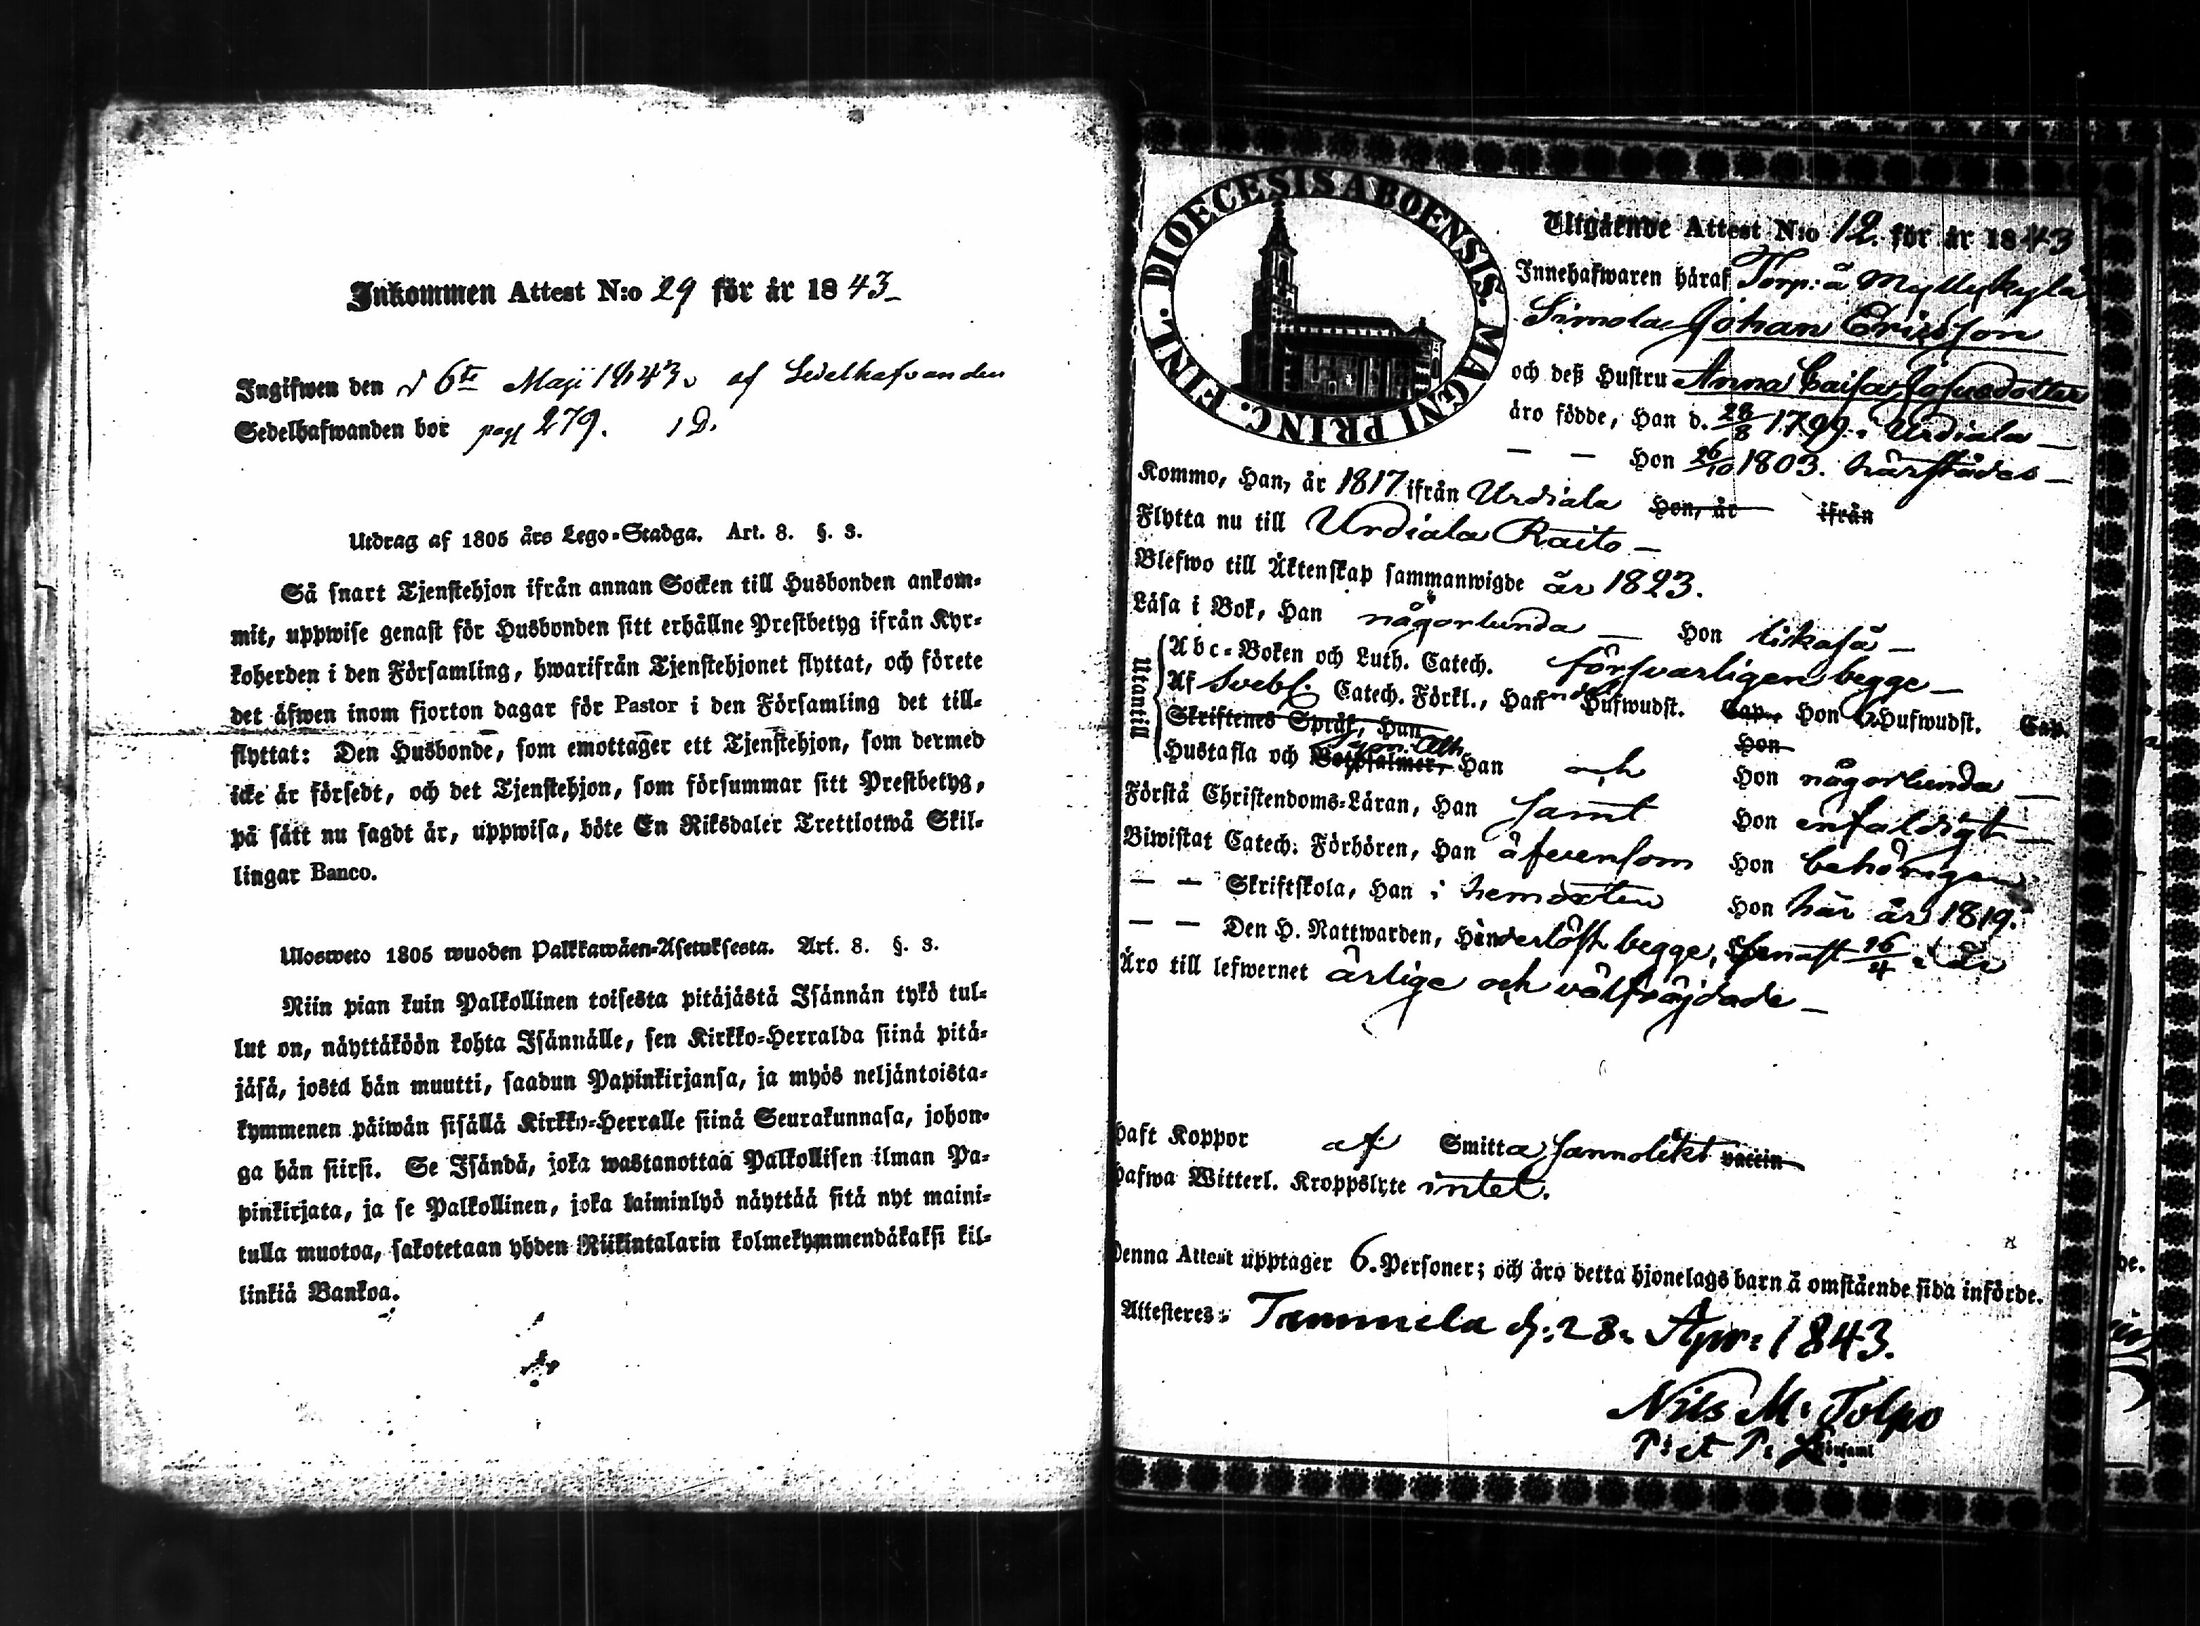 Inkommen Attest N:o 29 för år 1843
Ingifwen den d 6te Maji 1843 af Sedelhafvanden
Sedelhafwanden bor pag 279.
Utdrag af 1805 års Lego-Stadga. Art. 8. §. 3.
Så snart Tjenstehjon ifrån annan Socken till Husbonden ankom-
mit, uppwise genast för Husbonden sitt erhållne Prestbetyg ifrån Kyr-
koherden i den Församling, hwarifrån Tjenstehjonet flyttat, och förete
det äfwen inom fjorton dagar för Pastor i den Församling det till-
flyttat: Den Husbonde, som emottager ett Tjenstehjon, som dermed
icke är försedt, och det Tjenstehjon, som försummar sitt Prestbetyg,
på sätt nu sagdt är, uppwisa, böte En Riksdaler Trettiotwå Skil-
lingar Banco.
Ulosweto 1805 wuoden Palkkawäen-Asetuksesta. Art. 8. §. 3.
Niin pian kuin Palkollinen toisesta pitäjästä Isännän tykö tul-
lut on, näyttäköön kohta Isännälle, sen Kirkko-Herralda siinä pitä-
jäsä, josta hän muutti, saadun Papinkirjansa, ja myös neljäntoista-
kymmenen päiwän sisällä Kirkko-Herralle siinä Seurakunnasa, johon-
ga hän siirsi. Se Isändä, joka wastanottaa Palkollisen ilman Pa-
pinkirjata, ja se Palkollinen, joka laiminlyö näyttää sitä nyt maini-
tulla muotoa, sakotetaan yhden Riikintalarin kolmekymmendäkaksi kil-
linkiä Bankoa.
DIOECESIS ABOENSIS. MAGNI PRINC. FINL.
Utgående Attest N:o 12. för år 1843
Innehafwaren häraf Torp: å Myllykylä
Simola Johan Ericsson
och deß Hustru Anna Caisa Josuadotter
äro födde, Han d. 28/8 1799. i Urdiala
— — Hon 26/10 1803. härstädes
Kommo, Han, år 1817 ifrån Urdiala Hon, år ifrån
Flytta nu till Urdiala Raito
Blefwo till Äktenskap sammanwigde år 1823.
Läsa i Bok, Han någorlunda Hon likaså
Utantill
Abc-Boken och Luth. Catech. försvarligen begge
Af Svebl. Catech. Förkl., Han Hufwudst. Cap., Hon Hufwudst. Cap.
Skriftenes Språk, Han Hon
Hustafla och Botpsalmer, Han och Hon någorlunda
Förstå Christendoms-Läran, Han samt Hon enfaldigt
Biwistat Catech. Förhören, Han äfvensom Hon behörigen
— — Skriftskola, Han i hemorten Hon här år 1819.
— — Den H. Nattwarden, begge, senast 16/4 i år
Äro till lefwernet ärlige och välfräjdade
Haft Koppor af Smitta sannolikt vaccin
Hafwa Witterl. Kroppslyte intet.
Denna Attest upptager 6. Personer; och äro detta hjonelags barn å omstående sida införde.
Attesteres: Tammela d. 28. Apr: 1843.
Nils M. Tolpo
P: et P: i Församl